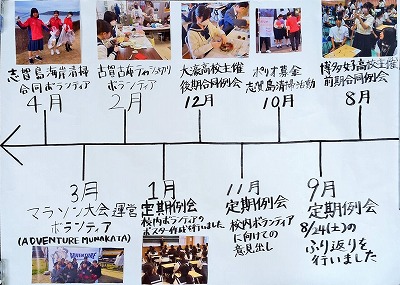 志賀島海岸清掃
合同ボランティア
4月
古賀古墳
ボランティア
2月
大濠高校主催
後期合同例会
12月
ポリオ募金
志賀島清掃活動
10月
博多女子高校主催
前期合同例会
8月
3月
マラソン大会運営
ボランティア
(ADVENTURE MUNAKATA)
1月
定期例会
校内ボランティアの
ポスター作成を行いました
11月
定期例会
校内ボランティア
に向けての
意見出し
9月
定期例会
8/24(土)の
ふり返りを
行いました